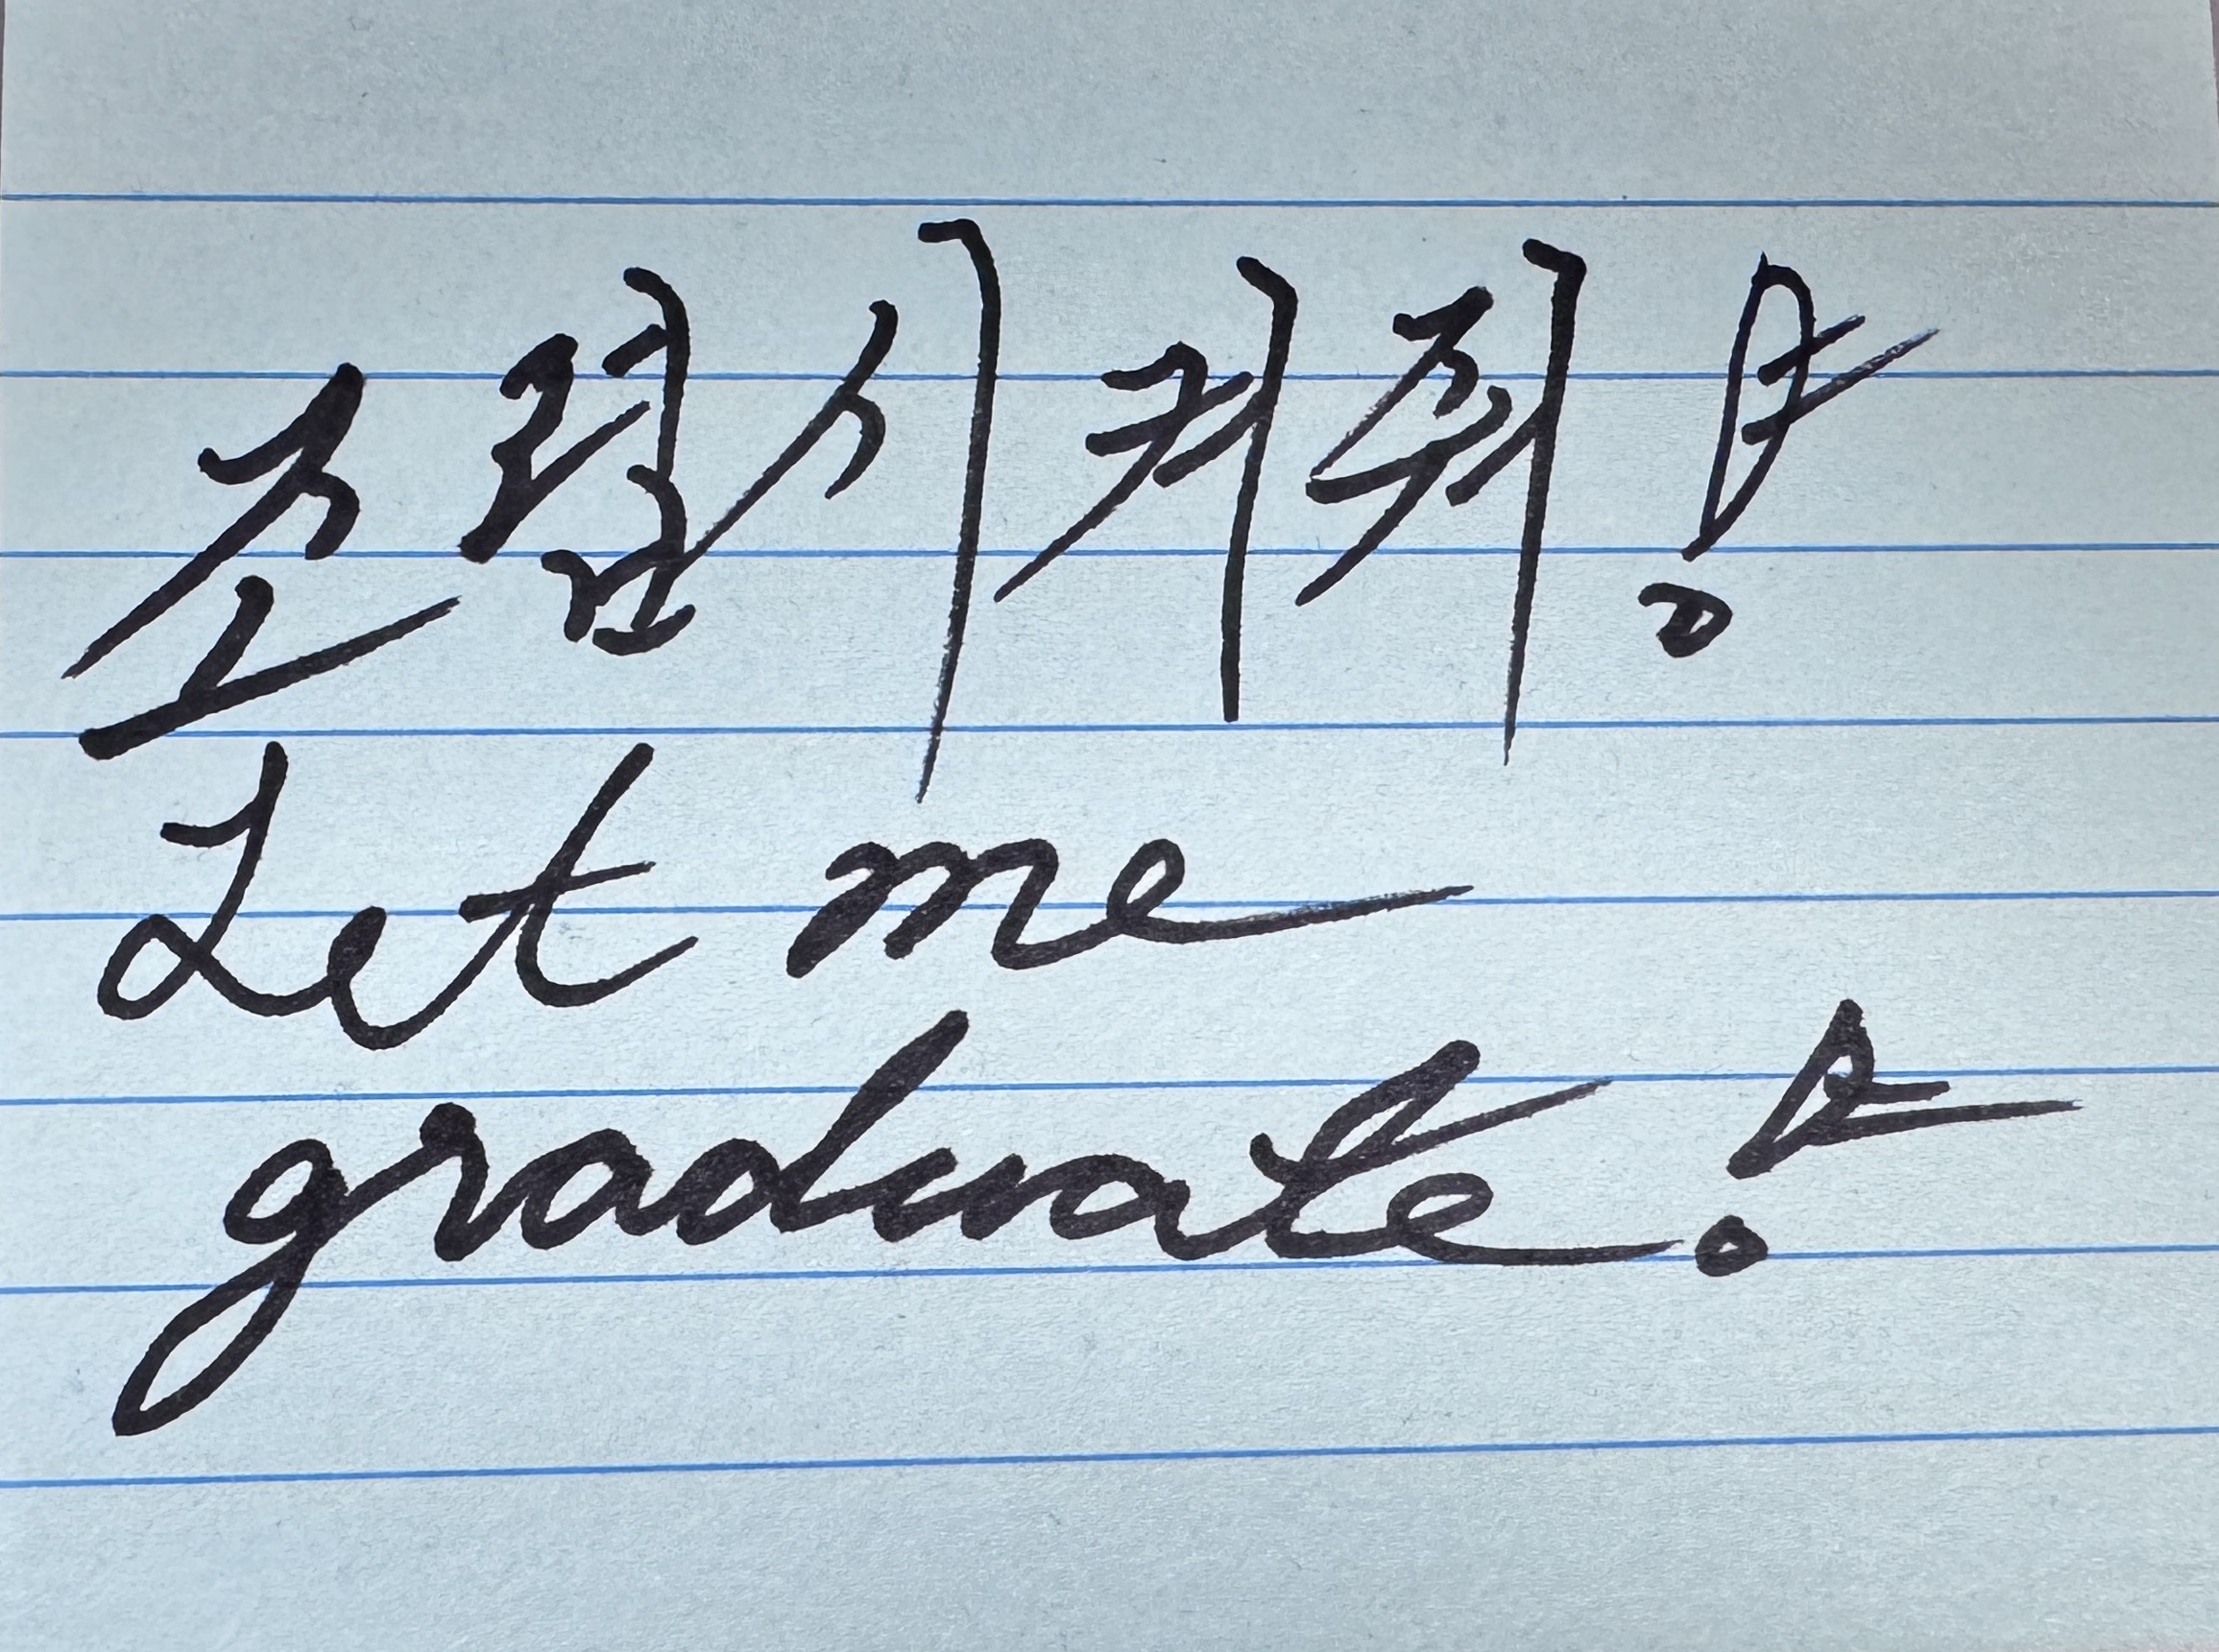 조럽시켜줘!
Let me
graduate!